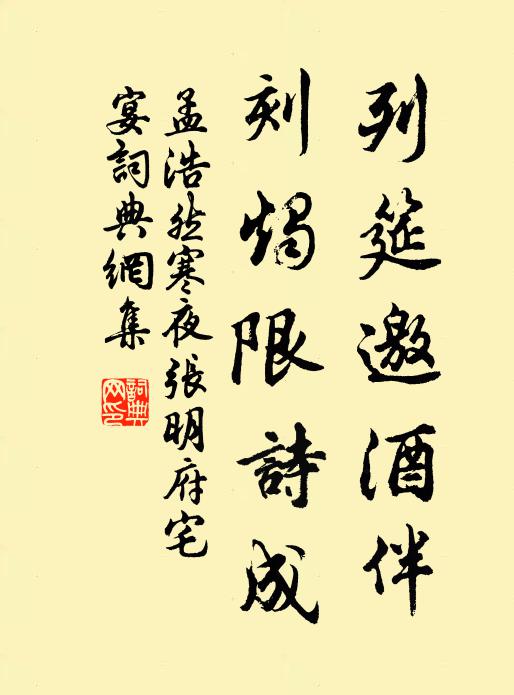 列筵邀酒伴
刻燭限詩成
孟浩然寒夜張明府宅
宴詞典網集
詞典網印